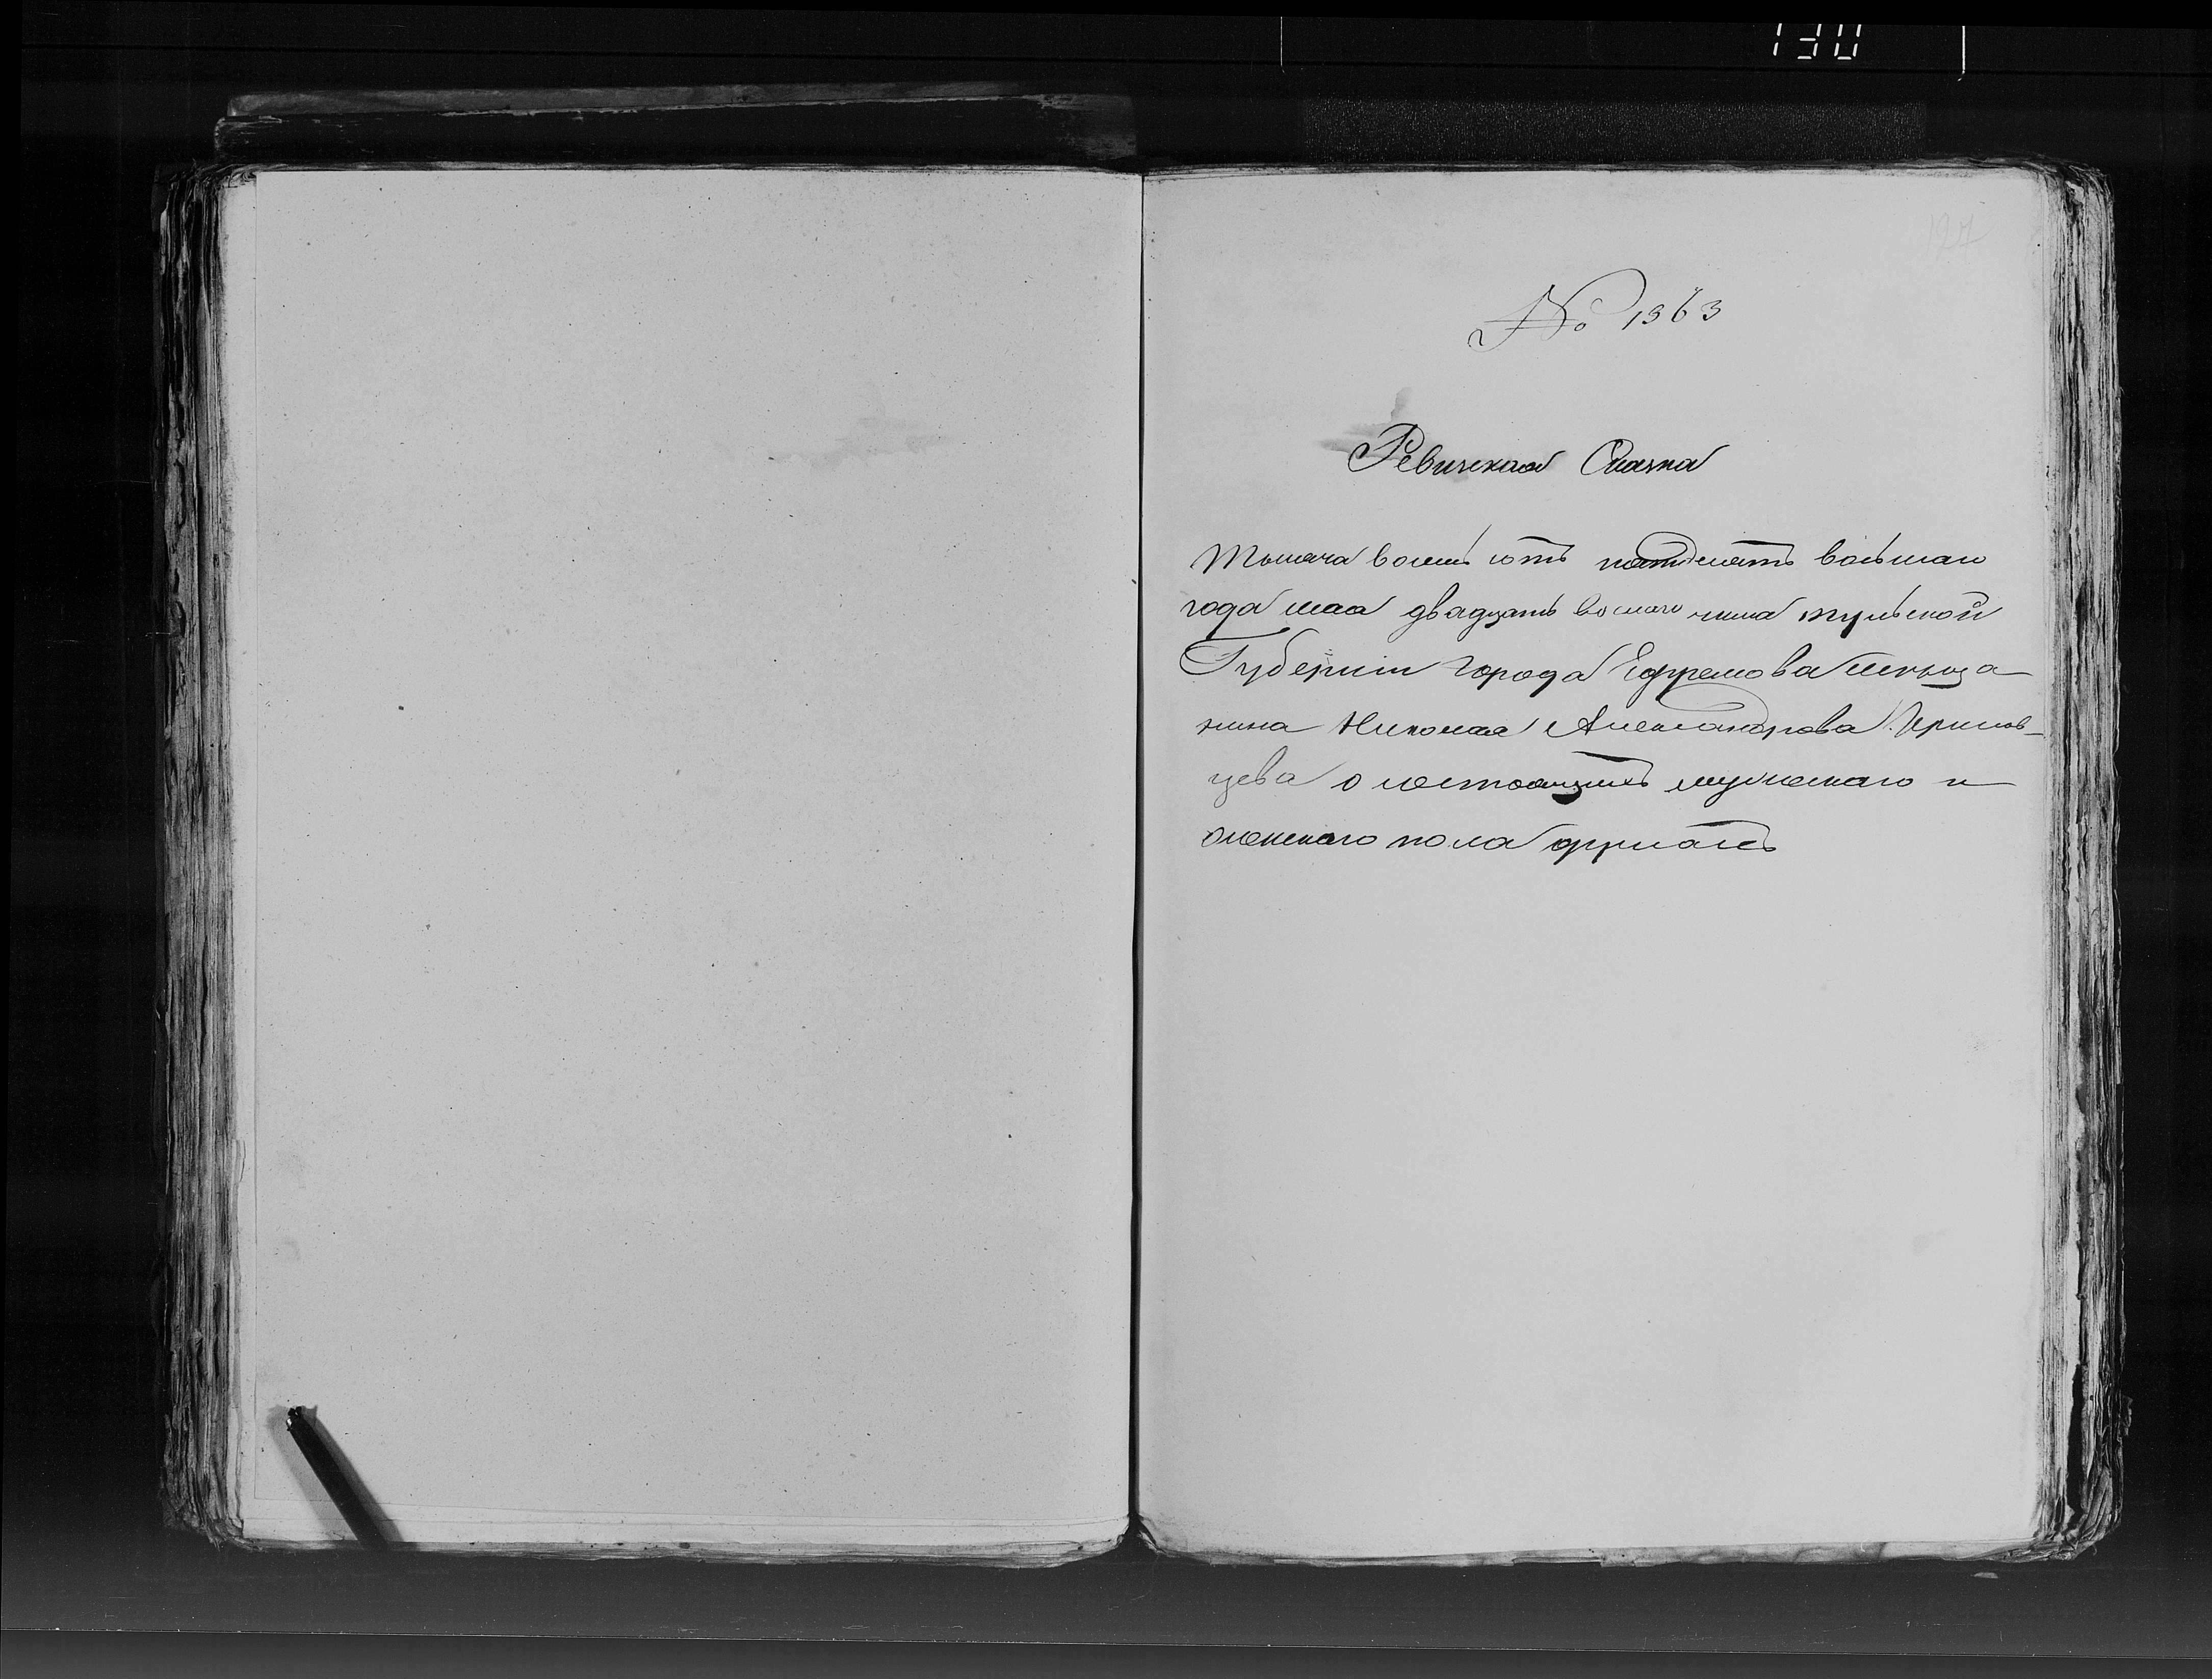 130
127
№ 1363
Ревизская Сказка
Тысяча восемь сотъ пятдесятъ восьмаго
года мая двадцать восмаго чила тульской
Губерніи города Ефремова мѣща
нина Николая Александрова
цева о состоящихъ мужескаго и
женскаго пола душахъ